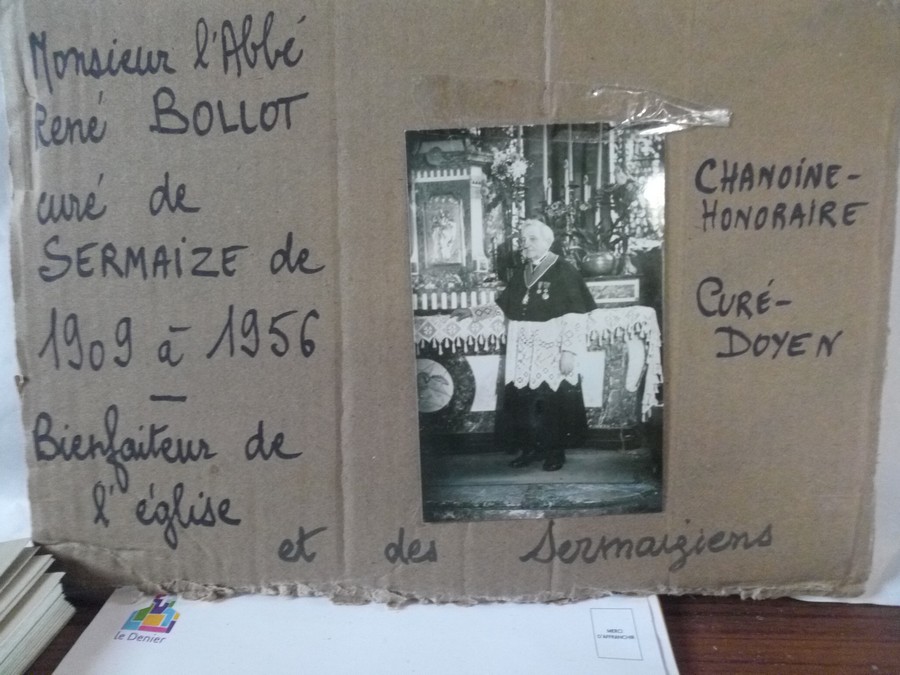 Monsieur l'Abbé
René BOLLOT
curé de
SERMAIZE de
1909 à 1956
—
Bienfaiteur de
l'église
et des Sermaiziens
CHANOINE-
HONORAIRE
CURÉ-
DOYEN
Le Denier